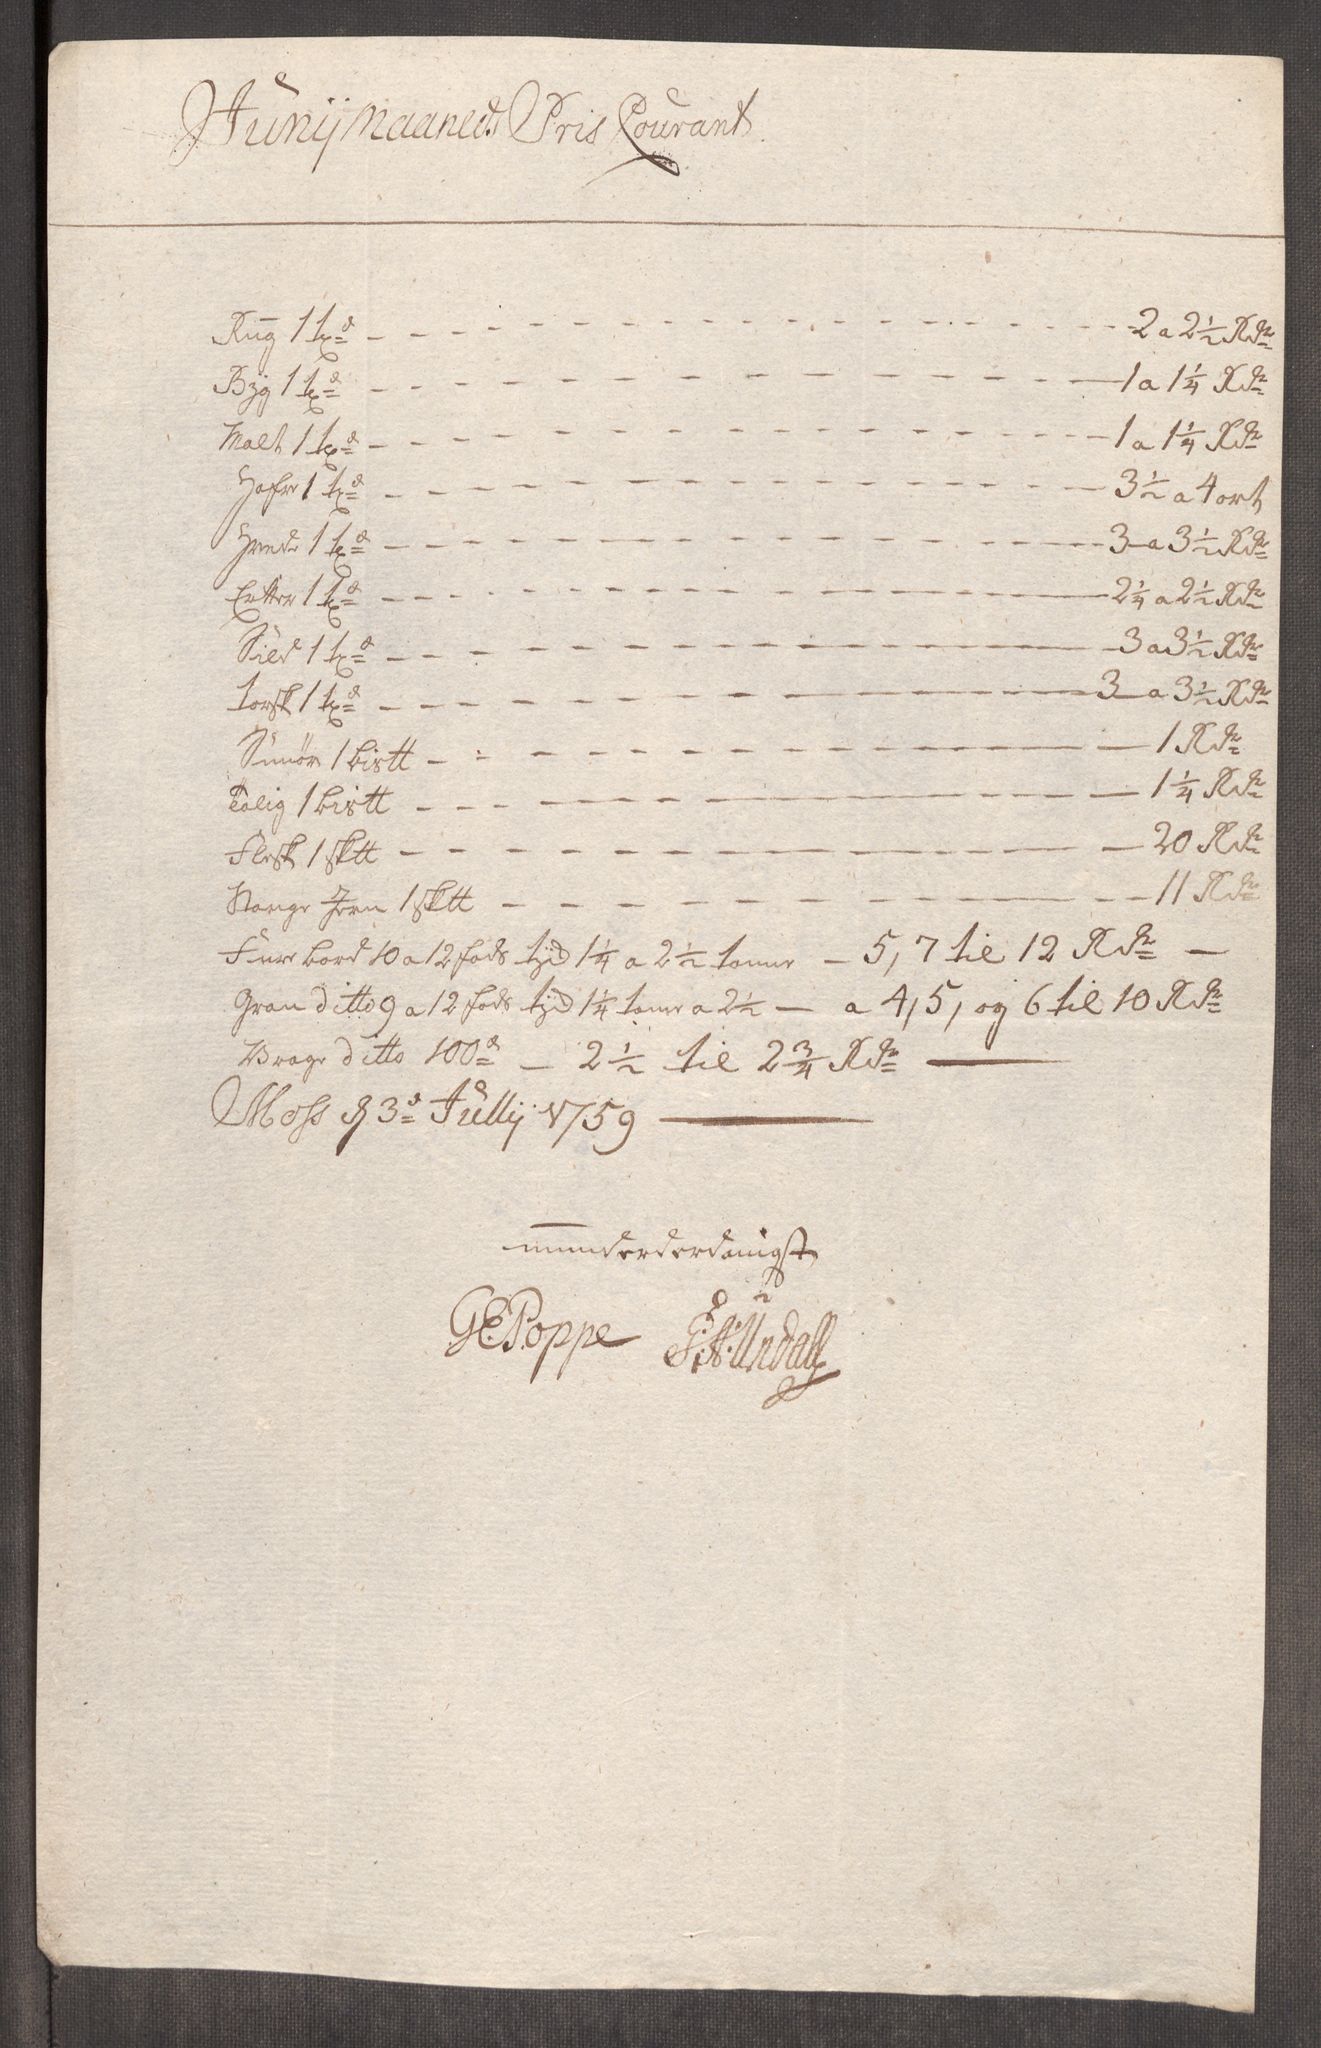 Junij Maaneds Pris Courant
Rug 1 td - - - 2 a 2 1/2 Rdr
Byg 1 td - - - 1 a 1 1/4 Rdr
Malt 1 td - - - 1 a 1 1/4 Rdr
Hafre 1 td - - - 3 1/2 a 4 ort
Hvede 1 td - - - 3 a 3 1/2 Rdr
Erter 1 td - - - 2 1/4 a 2 1/2 Rdr
Sild 1 td - - - 3 a 3 1/2 Rdr
torsk 1 td - - - 3 a 3 1/2 Rdr
Smør 1 bistt - - - 1 Rdr
Talig 1 bistt - - - 1 1/4 Rdr
Flesk 1 sktt - - - 20 Rdr
Stange Jern 1 sktt - - - 11 Rdr
Furre bord 10 a 12 fods tyk 1 1/4 a 2 1/2 tomme - 5, 7 til 12 Rdr -
Gran ditto 9 a 12 fods tyk 1 1/4 tome a 2 1/2 - a 4, 5, og 6 til 10 Rdr
Vrage ditto 100d - 2 1/2 til 2 3/4 Rdr
Moss d 3d Jullij 1759
underdanigst
GE Poppe F:A: Undall